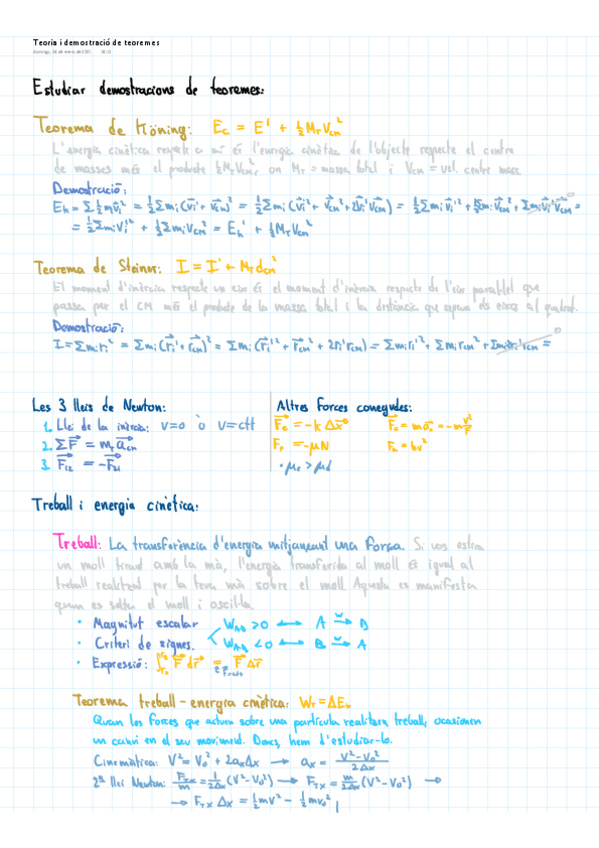 Teoria i demostració de teoremes
Estudiar demostracions de teoremes:
Teorema de Köning: Ec = E' + ½ M_T V_CM²
L'energia cinètica respecte a mi és l'energia cinètica de l'objecte respecte el centre
de masses més el producte ½ M_T V_CM², on M_T = massa total i V_CM = vel. centre masses
Demostració:
E_k = Σ ½ m v_i² = ½ Σ m_i (v_i' + v_CM)² = ½ Σ m_i (v_i'² + v_CM² + 2 v_i' v_CM) = ½ Σ m_i v_i'² + ½ Σ m_i v_CM² + Σ m_i v_i' v_CM =
= ½ Σ m_i v_i'² + ½ Σ m_i v_CM² = E_k' + ½ M_T V_CM²
Teorema de Steiner: I = I' + M_T d_CM²
El moment d'inèrcia respecte un eix és el moment d'inèrcia respecte de l'eix paral·lel que
passa per el CM més el producte de la massa total i la distància que separa els eixos al quadrat.
Demostració:
I = Σ m_i r_i² = Σ m_i (r_i' + r_CM)² = Σ m_i (r_i'² + r_CM² + 2 r_i' r_CM) = Σ m_i r_i'² + Σ m_i r_CM² + Σ m_i 2 r_i' r_CM =
Les 3 lleis de Newton:
1. Llei de la inèrcia: v=0 ò v=ctt
2. ΣF = m_T a_CM
3. F₁₂ = -F₂₁
Altres forces conegudes:
F_e = -k Δx
F_c = m a_n = -m v²/r
F_r = -μN
F_a = bv²
· μ_e > μ_d
Treball i energia cinètica:
Treball: La transferència d'energia mitjançant una força. Si vos estira
un moll tirant amb la mà, l'energia transferida al moll és igual al
treball realitzat per la teva mà sobre el moll. Aquesta es manifesta
quan es solta el moll i oscil·la.
• Magnitut escalar
• Criteri de signes. W_AB > 0 ⟷ A →w B
W_AB < 0 ⟷ B →w A
• Expressió: ∫ F dr = F Δr
Teorema treball-energia cinètica: W_T = ΔE_k
Quan les forces que actuen sobre una partícula realitzen treball, ocasionen
un canvi en el seu moviment. Doncs, hem d'estudiar-lo.
Cinemàtica: V² = V₀² + 2a_xΔx → a_x = (V² - V₀²)/2Δx
2ª llei Newton: F_TX/m = 1/2Δx (V² - V₀²) → F_TX = m/2Δx (V² - V₀²) →
→ F_TX Δx = ½ m v² - ½ m v₀²